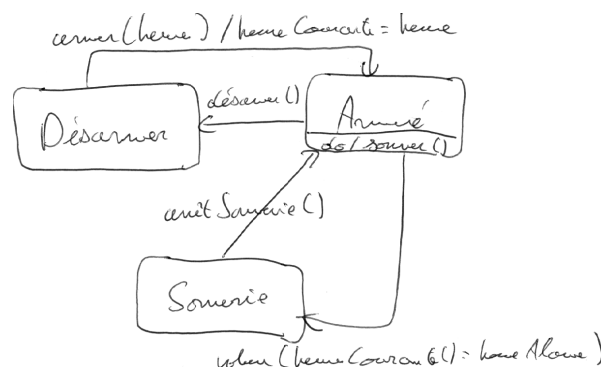 armer(heure) / heureCourante = heure
désarmer()
Désarmer
Armé
do/ sonner()
arrêtSonnerie()
Sonnerie
when (heureCourante() = heureAlarme)